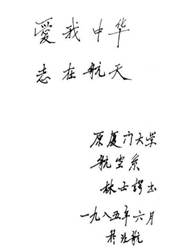 愛我中华
志在航天
原厦门大学
航空系
林士諤
一九八五年六月